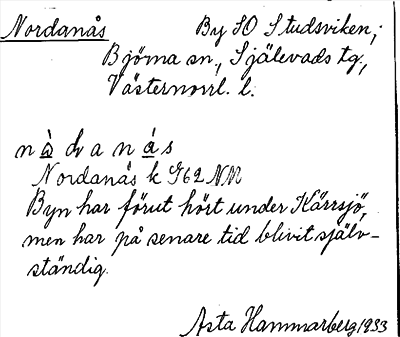 Nordanås By SO Studsviken,
Björna sn, Själevads tg,
Västernorrl. l.
nò̱ḍanás
Nordanås k G62 NM
Byn har förut hört under Kärrsjö,
men har på senare tid blivit själv-
ständig.
Asta Hammarberg 1933